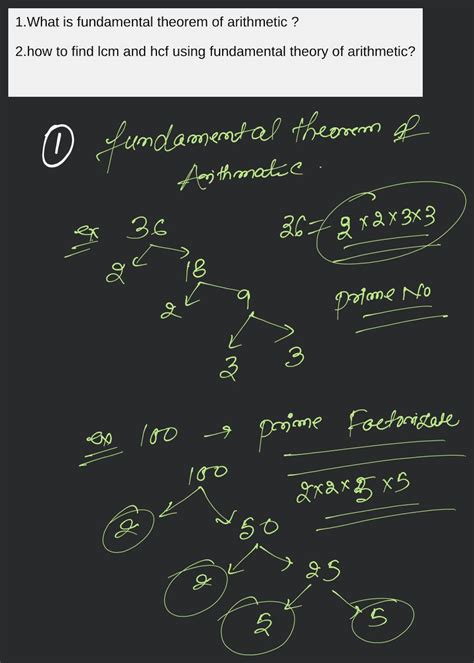 1.What is fundamental theorem of arithmetic ?
2.how to find lcm and hcf using fundamental theory of arithmetic?
① fundamental theorem of
Arithmatic .
ex 36
36 = 2x2x3x3
2 18
2 9
prime No
3 3
ex 100 → prime Factorizate
100
2x2x5x5
2 50
2 25
5 5